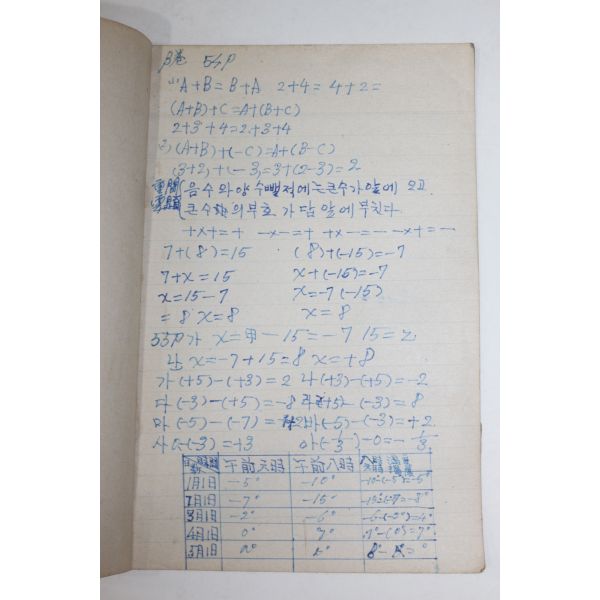 β巻 54P
(1) A+B=B+A 2+4=4+2=
(A+B)+C=A+(B+C)
2+3+4=2+3+4
2) (A+B)+(-C)=A+(B-C)
(3+2)+(-3)=3+(2-3)=2
음수와양수뺄적에는큰수가앞에오고
큰수의부호가답앞에부친다
+×+=+ -×-=+ +×-=- -×+=-
7+(8)=15 (8)+(-15)=-7
7+x=15 x+(-15)=-7
x=15-7 x=-7(-15)
=8 x=8 x=8
55P가 x= -15=-7 15=
나 x=-7+15=8 x=+8
가(+5)-(+3)=2 나(+3)-(+5)=-2
다(-3)-(+5)=-8 라(+5)-(-3)=8
마(-5)-(-7)=+2 바(-5)-(-3)=+2
사0-(-3)=+3 아(-1/3)-0=-1/3
午前六時 午前八時
1月1日 -5° -10° -10-(-5°)=-5°
2月1日 -7° -15° -15-(-7)=-8°
3月1日 -2° -6°
4月1日 0° 7°
5月1日